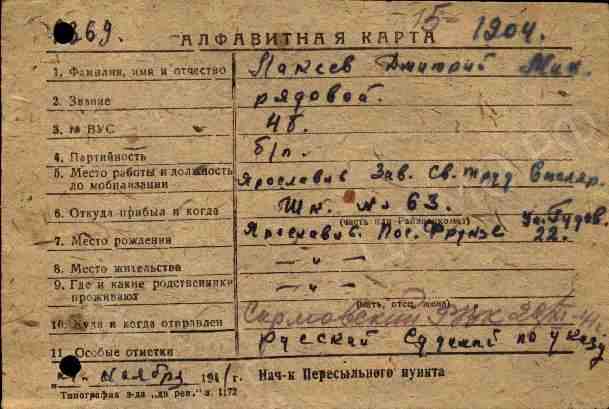 369. 15 1904.
АЛФАВИТНАЯ КАРТА
1. Фамилия, имя и отчество Лакеев Дмитрий Мих.
2. Звание рядовой.
3. № ВУС 4б.
4. Партийность б/п.
5. Место работы и должность до мобилизации Ярославль Зав. Св. труд
6. Откуда прибыл и когда № 63.
(часть или Райвоенкомат)
7. Место рождения Ярославль. Пос. Фрунзе 22.
8. Место жительства — „ —
9. Где и какие родственники проживают — „ —
(мать, отец, жена)
10. Куда и когда отправлен РВК
11. Особые отметки Русский Судимый по указу
ноября 1941 г. Нач-к Пересыльного пункта
Типография з-да з. 1172